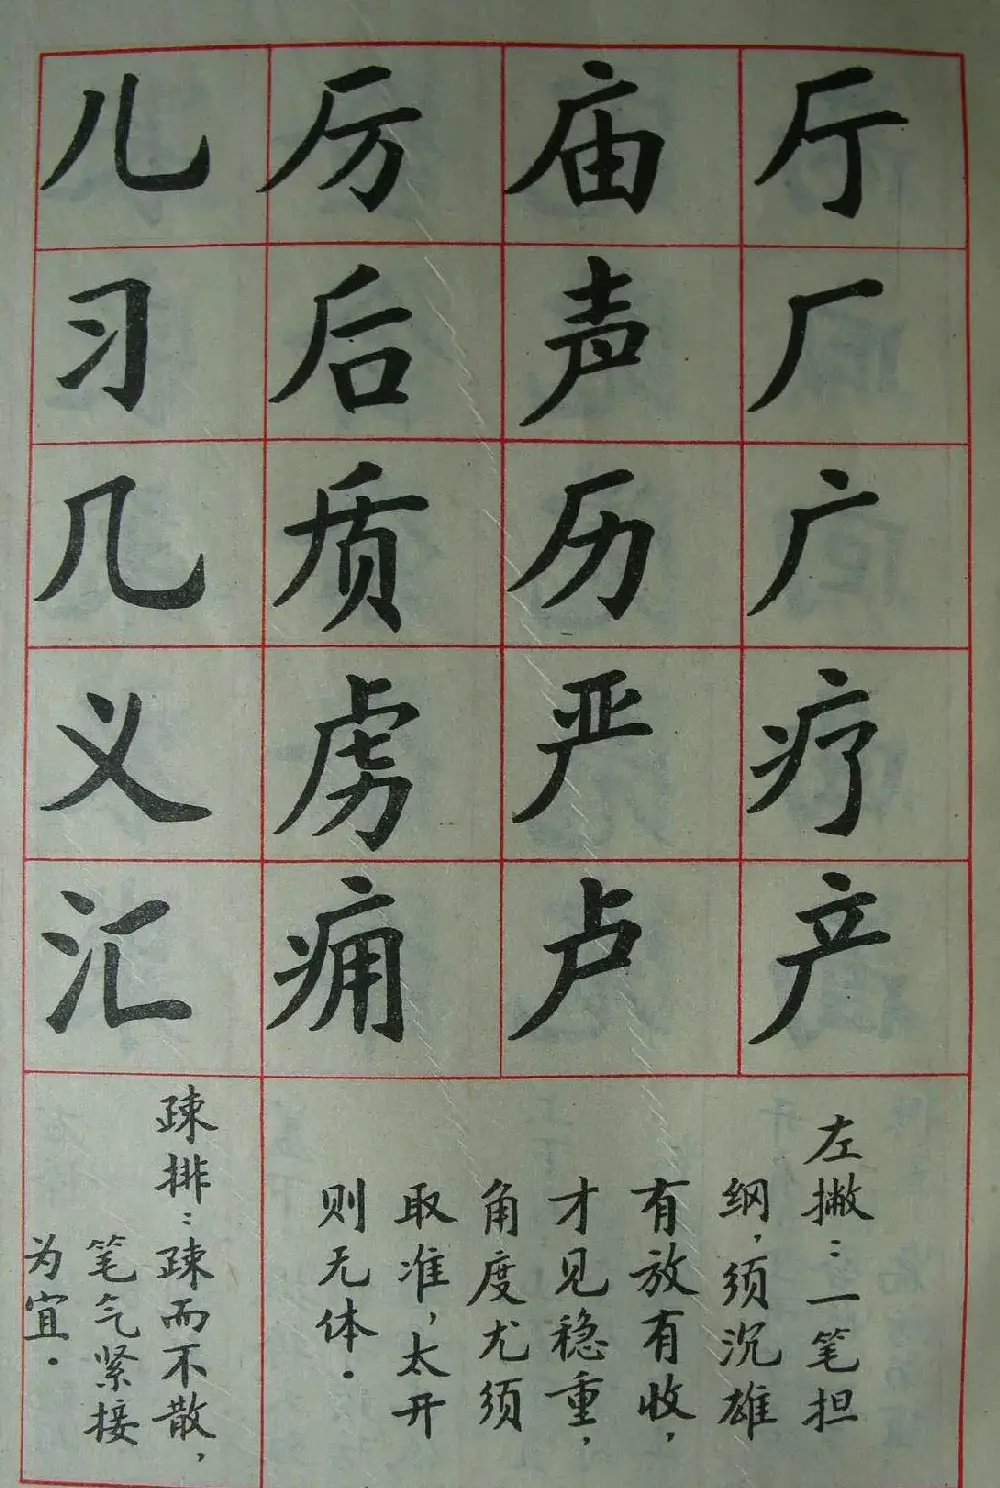 厅厂广疗产
左撇：一笔担
纲，须沉雄
有放有收，
才见稳重，
角度尤须
取准，太开
则无体．
庙声历严卢
厉后质虏痈
儿习几义汇
疎排：疎而不散，
笔气紧接
为宜．